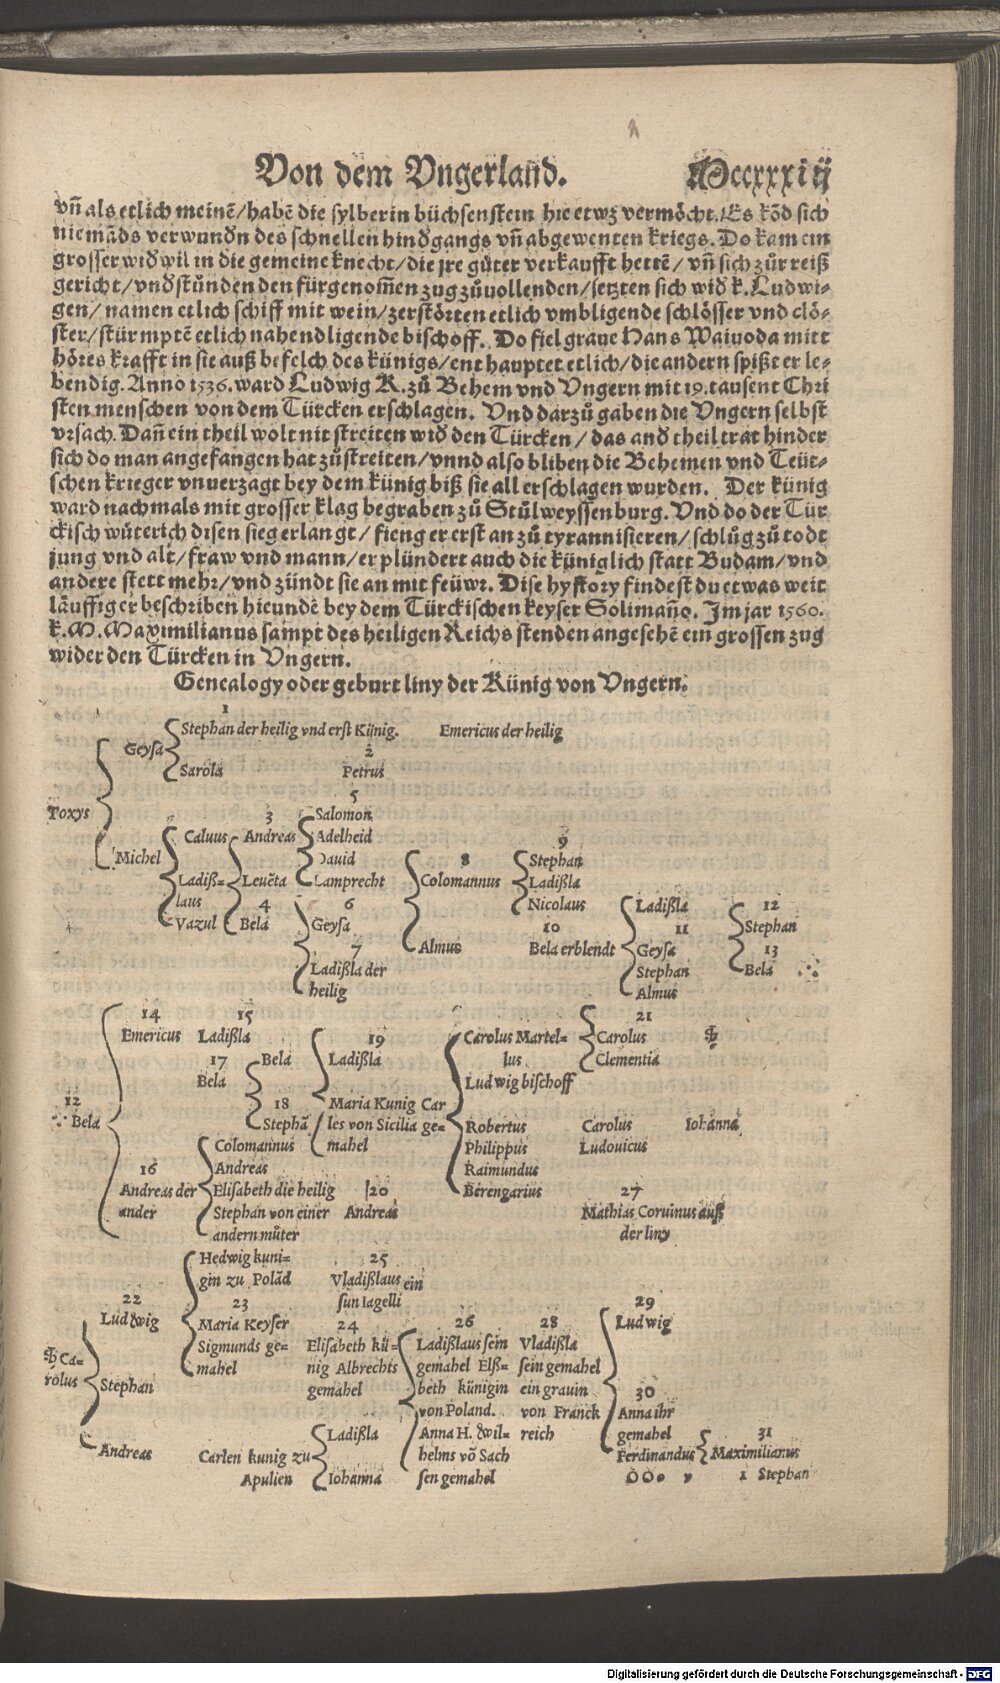 Von dem Vngerland. Mccxxxiij
vñ als etlich meinẽ/habẽ die sylberin büchsenstein hie etwz vermöcht. Es kōd sich
niemāds verwundn des schnellen hindgangs vñ abgewenten kriegs. Do kam ein
grosser widwil in die gemeine knecht/die jre gůter verkaufft hettē/ vñ sich zůr reiß
gericht/vnd stůnden den fürgenom̃en zug zů uollenden/setzten sich wid k. Ludwi-
gen/namen etlich schiff mit wein/zerstörten etlich vmbligende schlösser vnd clö-
ster/stürmptē etlich nahend ligende bischoff. Do fiel graue Hans Waiuoda mitt
höres krafft in sie auß befelch des künigs/enthauptet etlich/die andern spißt er le-
bendig. Anno 1536. ward Ludwig K. zů Behem vnd Vngern mit 19. tausent Chri
sten menschen von dem Türcken erschlagen. Vnd darzů gaben die Vngern selbst
vrsach. Dañ ein theil wolt nit streiten wid den Türcken/das and theil trat hinder
sich do man angefangen hat zů streiten/vnnd also bliben die Behemen vnd Teüt-
schen krieger vnuerzagt bey dem künig biß sie all erschlagen wurden. Der künig
ward nachmals mit grosser klag begraben zů Stůlweyssenburg. Vnd do der Tür
ckisch wůterich disen sieg erlangt/ fieng er erst an zů tyrannisieren/schlůg zů todt
jung vnd alt/fraw vnd mann/er plündert auch die küniglich statt Budam/vnd
andere stett mehr/vnd zündt sie an mit feüwr. Dise hystory findest du etwas weit
läuffiger beschriben hieundē bey dem Türckischen keyser Solimaño. Im jar 1560.
k. M. Maximilianus sampt des heiligen Reichs stenden angesehē ein grossen zug
wider den Türcken in Vngern.
Genealogy oder geburt liny der Künig von Vngern.
1
Stephan der heilig vnd erst Künig. Emericus der heilig
Geysa 2
Sarola Petrus
5
Toxys 3 Salomon
Caluus Andreas Adelheid 9
Michel Dauid 8 Stephan
Ladiß- Leuēta Lamprecht Colomannus Ladißla
laus 4 6 Nicolaus Ladißla 12
Vazul Bela Geysa 10 11 Stephan
7 Almus Bela erblendt Geysa 13
Ladißla der Stephan Bela
heilig Almus
14 15 21
Emericus Ladißla 19 Carolus Martel- Carolus
17 Bela Ladißla lus Clementia
Bela Ludwig bischoff
12 18 Maria Kunig Car
Bela Stephā les von Sicilia ge- Robertus Carolus Iohānā
Colomannus mahel Philippus Ludouicus
16 Andreas Raimundus
Andreas der Elisabeth die heilig 20 Berengarius 27
ander Stephan von einer Andreas Mathias Coruinus auß
andern můter der liny
Hedwig kuni- 25
gin zu Polād Vladißlaus ein
22 23 sun Iagelli 29
Ludwig Maria Keyser 24 26 28 Ludwig
Sigmunds ge- Elisabeth kü- Ladißlaus sein Vladißla
Ca- mahel nig Albrechts gemahel Elß- sein gemahel
rolus Stephan gemahel beth künigin ein grauin 30
von Poland. von Franck Anna ihr
Ladißla Anna H. Wil- reich gemahel 31
Andreas Carlen kunig zu helms vō Sach Ferdinandus Maximilianus
Apulien Iohanna sen gemahel DDo v 1 Stephan
Digitalisierung gefördert durch die Deutsche Forschungsgemeinschaft - DFG